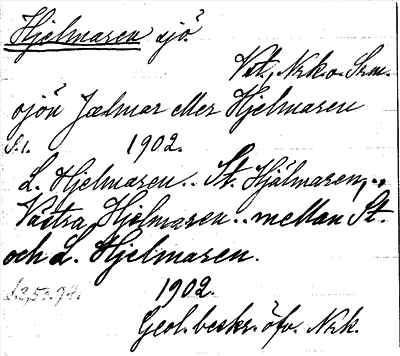 Hjelmaren sjö
Vstm., Nrk. o. Srm.
sjön Jælmar eller Hjelmaren
S. 1. 1902.
L. Hjelmaren .. St. Hjälmaren, ..
Västra Hjelmaren .. mellan St.
och L. Hjelmaren.
S. 2, 53. 74. 1902.
Geol. beskr. öfv. Nrk.